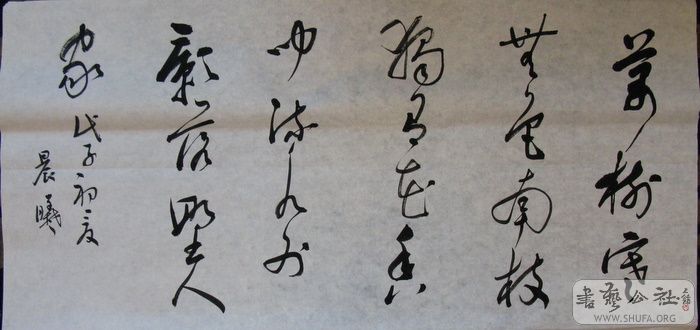 萬樹寒
無色南枝
獨有花香
聞流水外
影落野人
家 戊子初夏
晨曦
書藝公社
WWW.SHUFA.ORG